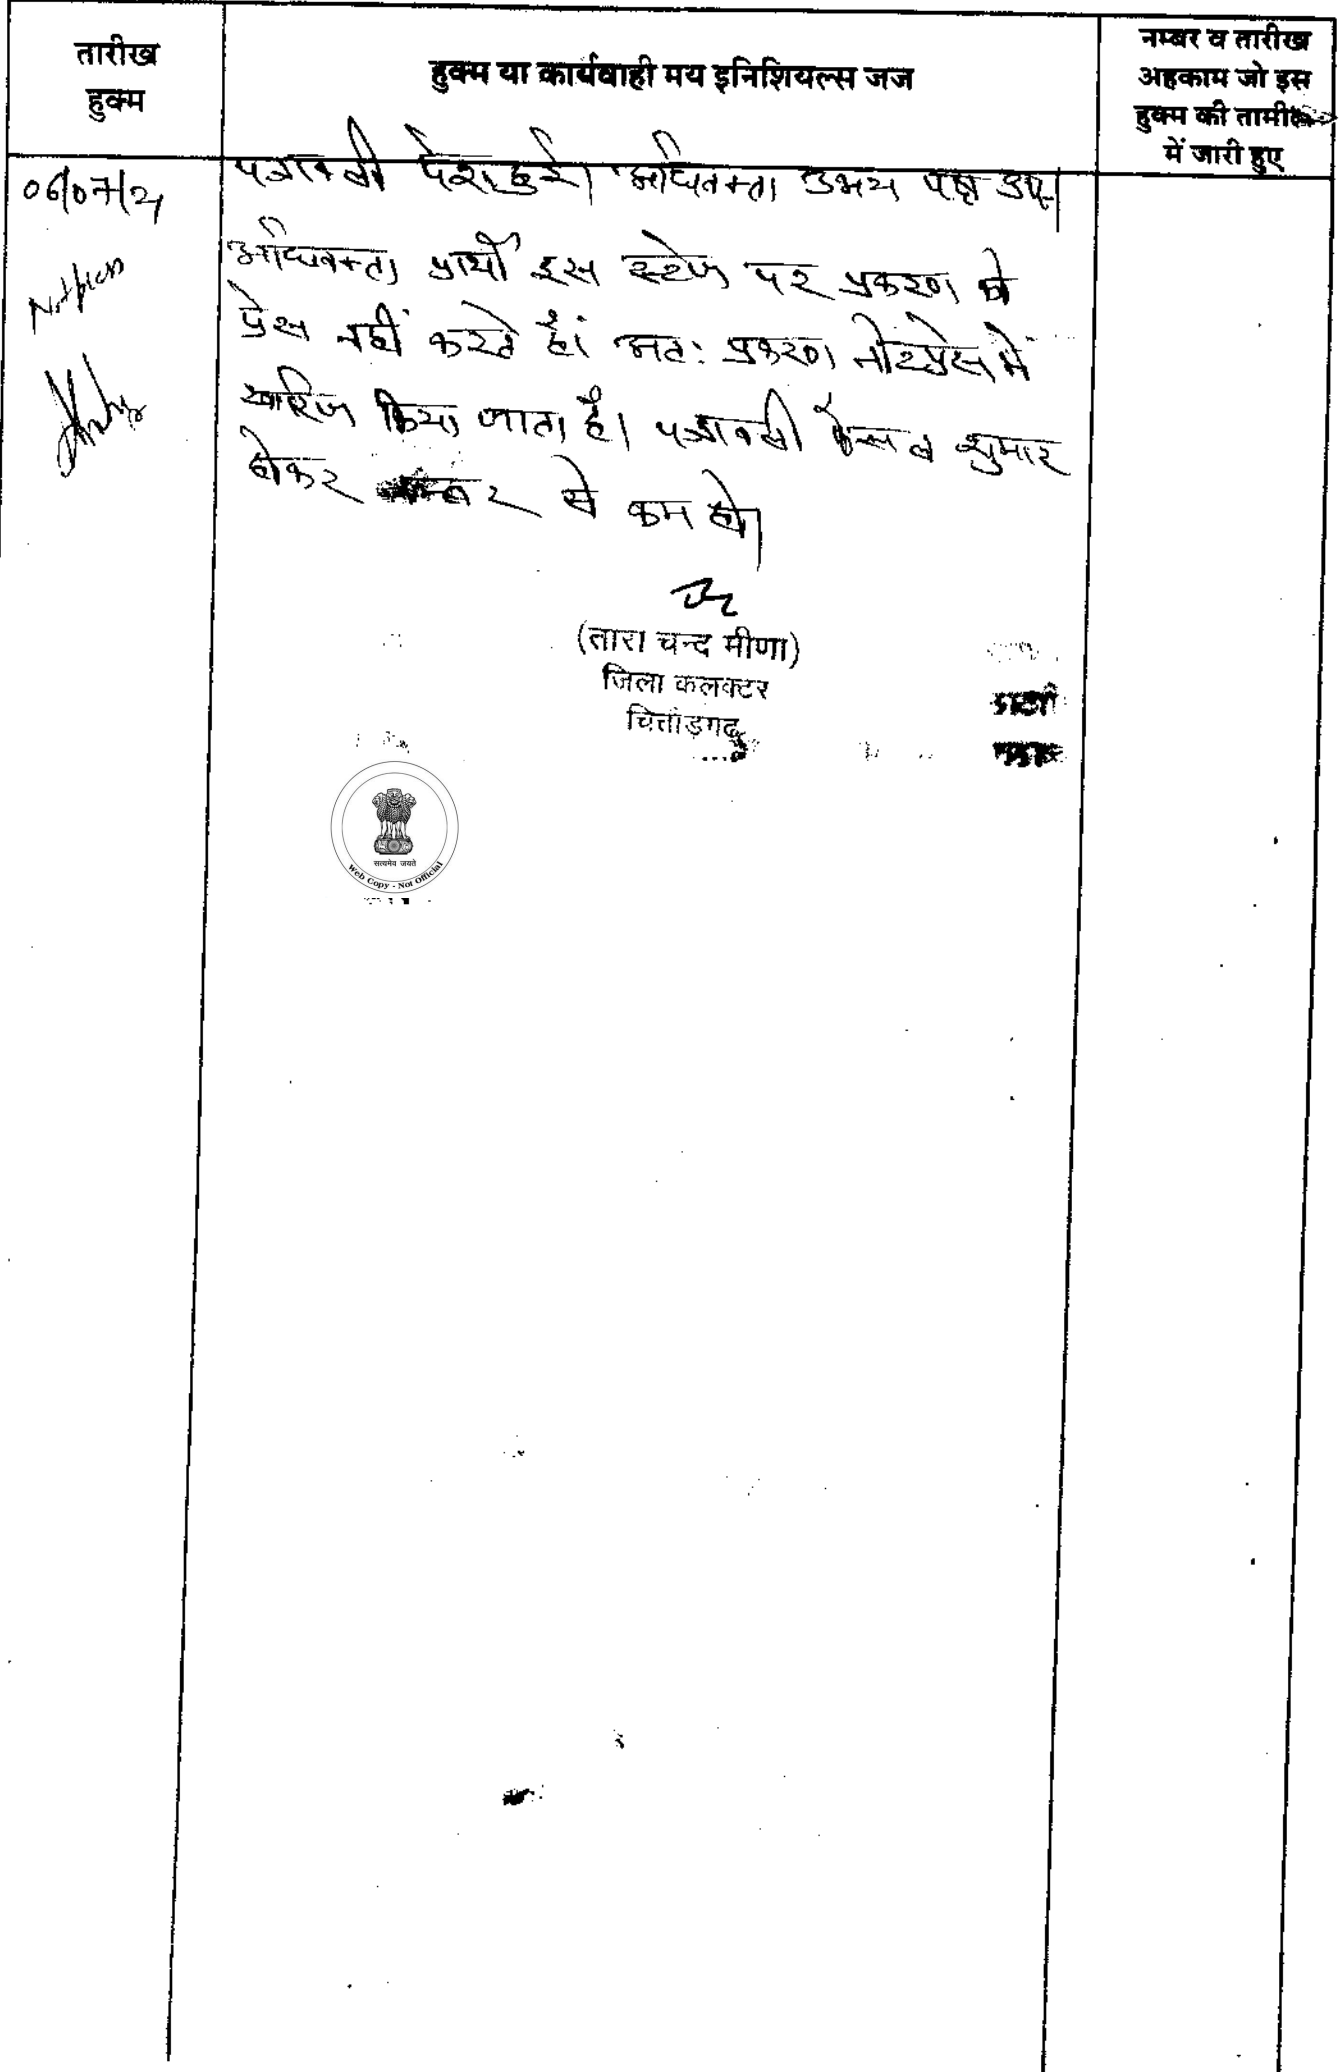 तारीख
हुक्म
हुक्म या कार्यवाही मय इनिशियल्स जज
नम्बर व तारीख
अहकाम जो इस
हुक्म की तामील
में जारी हुए
06/07/21
पत्रावली पेश हुई। अधिवक्ता उभय पक्ष उप.।
अधिवक्ता प्रार्थी इस स्टेज पर प्रकरण को
प्रेस नहीं करते हैं। अतः प्रकरण नोटप्रेस में
खारिज किया जाता है। पत्रावली फैसल शुमार
होकर नम्बर से कम हो।
(तारा चन्द मीणा)
जिला कलक्टर
चित्तौड़गढ़
सत्यमेव जयते
Web Copy - Not Official